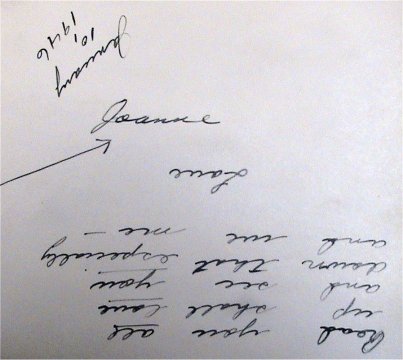 Read you all
up shall love
and see you
down that especially
and we me –
Love
Joanne
January
10,
1946